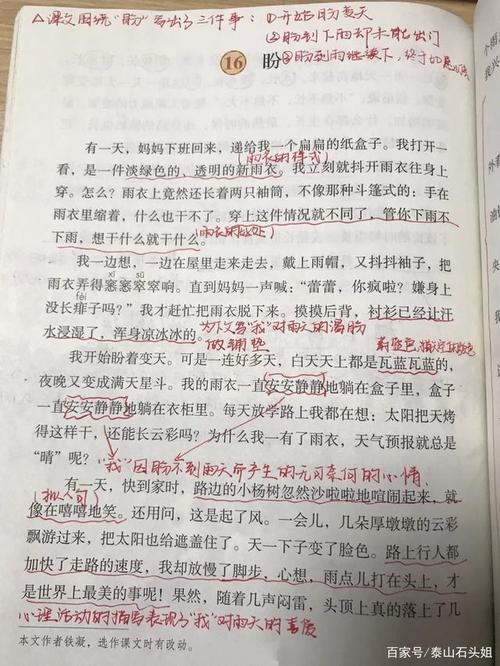 △课文围绕"盼"写出了三件事：①开始盼变天
②盼到下雨却未能出门
③盼到雨继续下，终于如愿以偿
16 盼
有一天，妈妈下班回来，递给我一个扁扁的纸盒子。我打开一
(雨衣的样式)
看，是一件淡绿色的、透明的新雨衣。我立刻就抖开雨衣往身上
穿。怎么？雨衣上竟然还长着两只袖筒，不像那种斗篷式的：手在
雨衣里缩着，什么也干不了。穿上这件情况就不同了，管你下雨不
(雨衣的好处)
下雨，想干什么就干什么。
我一边想，一边在屋里走来走去，戴上雨帽，又抖抖袖子，把
xī sū
雨衣弄得窸窸窣窣响。直到妈妈一声喊："蕾蕾，你疯啦？嫌身上
fèi
没长痱子吗？"我才赶忙把雨衣脱下来。摸摸后背，衬衫已经让汗
水浸湿了，浑身凉冰冰的。
为下文写"我"对雨天的渴盼
做铺垫
我开始盼着变天。可是一连好多天，白天天上都是瓦蓝瓦蓝的，
夜晚又变成满天星斗。我的雨衣一直安安静静地躺在盒子里，盒子
一直安安静静地躺在衣柜里。每天放学路上我都在想：太阳把天烤
得这样干，还能长云彩吗？为什么我一有了雨衣，天气预报就总是
"晴"呢？
"我"因盼不到雨天所产生的无可奈何的心情
有一天，快到家时，路边的小杨树忽然沙啦啦地喧闹起来，就
(拟人句)
像在嘻嘻地笑。还用问，这是起了风。一会儿，几朵厚墩墩的云彩
飘游过来，把太阳也给遮盖住了。天一下子变了脸色。路上行人都
加快了走路的速度，我却放慢了脚步，心想，雨点儿打在头上，才
是世界上最美的事呢！果然，随着几声闷雷，头顶上真的落了几
心理活动的描写表现了"我"对雨天的喜爱
本文作者铁凝，选作课文时有改动。
百家号/泰山石头姐